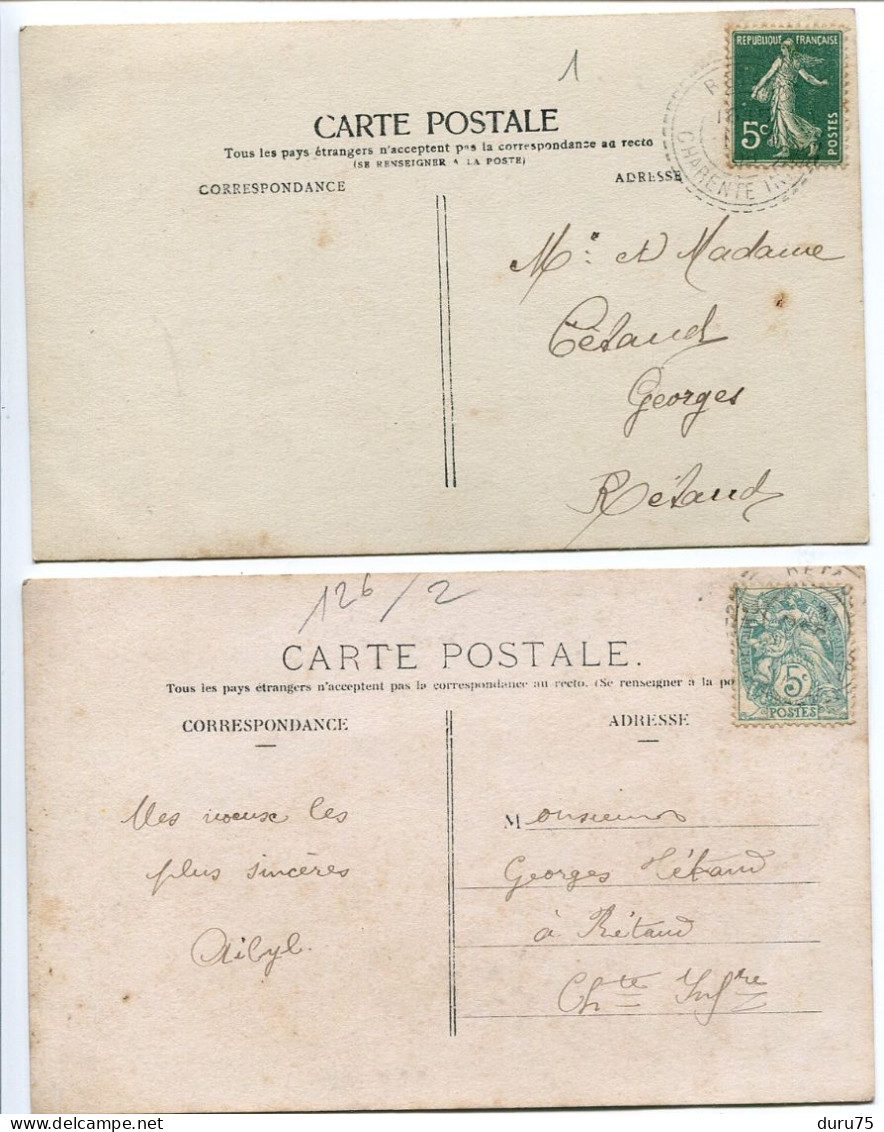 1
REPUBLIQUE FRANÇAISE
5c
POSTES
CHARENTE
CARTE POSTALE
Tous les pays étrangers n'acceptent pas la correspondance au recto
(SE RENSEIGNER A LA POSTE)
CORRESPONDANCE
ADRESSE
Mr et Madame
Georges
Rétaud
126/2
5c
POSTES
CARTE POSTALE.
Tous les pays étrangers n'acceptent pas la correspondance au recto. (Se renseigner à la po
CORRESPONDANCE
ADRESSE
Mes voeux les
plus sincères
Monsieur
Georges
à Rétaud
Chte Infre
duru75